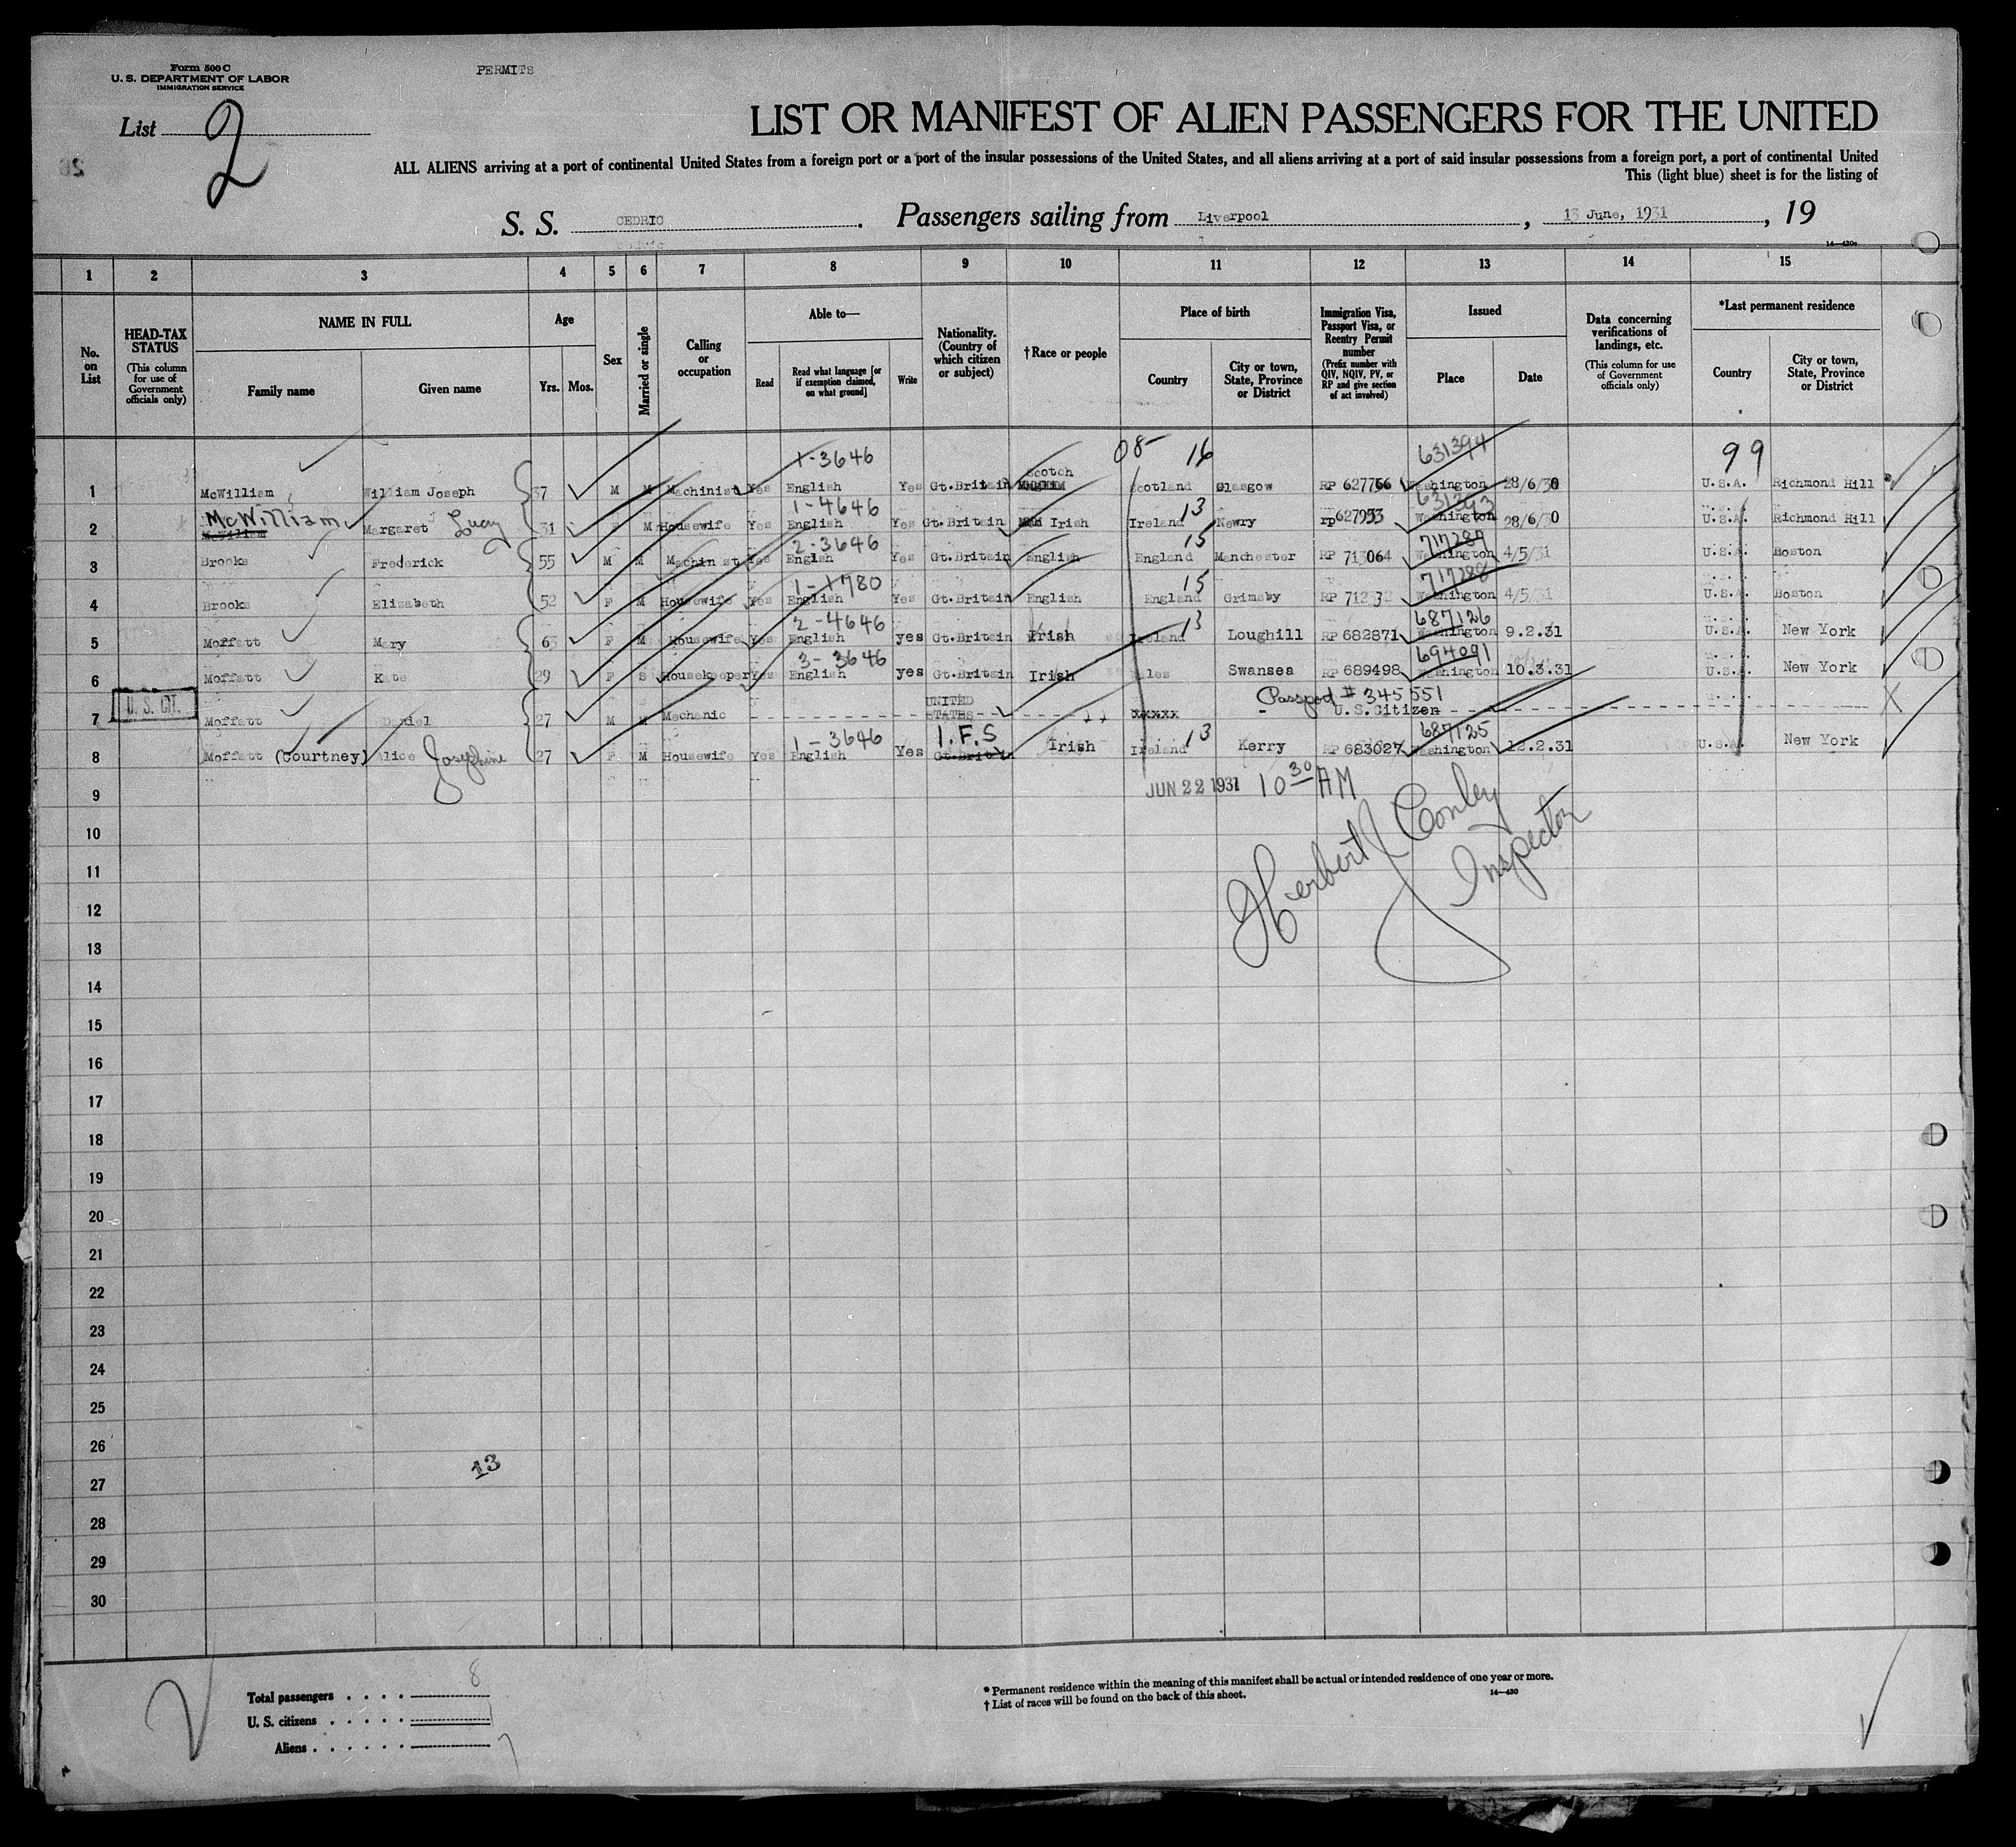 Form 500 C
U. S. DEPARTMENT OF LABOR
IMMIGRATION SERVICE
PERMITS
List 2
LIST OR MANIFEST OF ALIEN PASSENGERS FOR THE UNITED
ALL ALIENS arriving at a port of continental United States from a foreign port or a port of the insular possessions of the United States, and all aliens arriving at a port of said insular possessions from a foreign port, a port of continental United
This (light blue) sheet is for the listing of
S. S. CEDRIC . Passengers sailing from Liverpool , 13 June, 1931 , 19
14—430c
1 2 3 4 5 6 7 8 9 10 11 12 13 14 15
No. on List
HEAD-TAX STATUS
(This column for use of Government officials only)
NAME IN FULL
Family name Given name
Age
Yrs. Mos.
Sex
Married or single
Calling or occupation
Able to—
Read Read what language [or if exemption claimed, on what ground] Write
Nationality. (Country of which citizen or subject)
†Race or people
Place of birth
Country City or town, State, Province or District
Immigration Visa, Passport Visa, or Reentry Permit number
(Prefix number with QIV, NQIV, PV, or RP and give section of act involved)
Issued
Place Date
Data concerning verifications of landings, etc.
(This column for use of Government officials only)
*Last permanent residence
Country City or town, State, Province or District
1-3646 08- 16 631394 99
Scotch
1 McWilliam William Joseph 37 M M Machinist Yes English Yes Gt.Britain Scotland Glasgow RP 627756 Washington 28/6/30 U.S.A. Richmond Hill
McWilliam 1-4646 13 631393
2 Margaret Lucy 31 F M Housewife Yes English Yes Gt.Britain Irish Ireland Newry rp 627953 Washington 28/6/30 U.S.A. Richmond Hill
2-3646 15 717287
3 Brooks Frederick 55 M M Machinist Yes English Yes Gt.Britain English England Manchester RP 713064 Washington 4/5/31 U.S.A. Boston
1-1780 15 717288
4 Brooks Elizabeth 52 F M Housewife Yes English Yes Gt.Britain English England Grimsby RP 71232 Washington 4/5/31 U.S.A. Boston
2-4646 13 687126
5 Moffatt Mary 63 F M Housewife Yes English yes Gt.Britain Irish Ireland Loughill RP 682871 Washington 9.2.31 U.S.A. New York
3-3646 694091
6 Moffatt Kate 29 F S Housekeeper Yes English yes Gt.Britain Irish Wales Swansea RP 689498 Washington 10.3.31 U.S.A. New York
U. S. CIT. UNITED Passport # 345551
7 Moffatt Daniel 27 M M Mechanic STATES xxxxx U.S.Citizen X
1-3646 I.F.S 13 687125
8 Moffatt (Courtney) Alice Josephine 27 F M Housewife Yes English Yes Gt.Britain Irish Ireland Kerry RP 683027 Washington 12.2.31 U.S.A. New York
9 JUN 22 1931 10 30 AM
10
11
Herbert J Conley
Inspector
12
13
14
15
16
17
18
19
20
21
22
23
24
25
26
13
27
28
29
30
Total passengers . . . . 8
U. S. citizens . . . . .
Aliens . . . . . . 7
* Permanent residence within the meaning of this manifest shall be actual or intended residence of one year or more.
† List of races will be found on the back of this sheet.
14—430